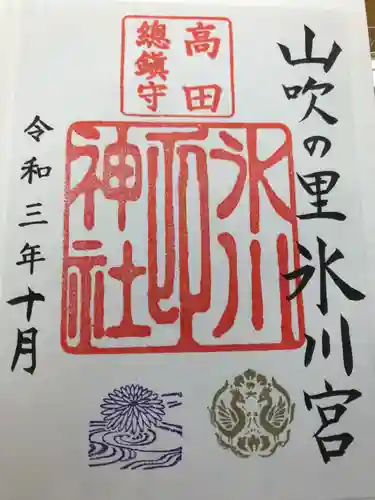 山吹の里氷川宮
高田
總鎮守
氷川
印
神社
令和三年十月